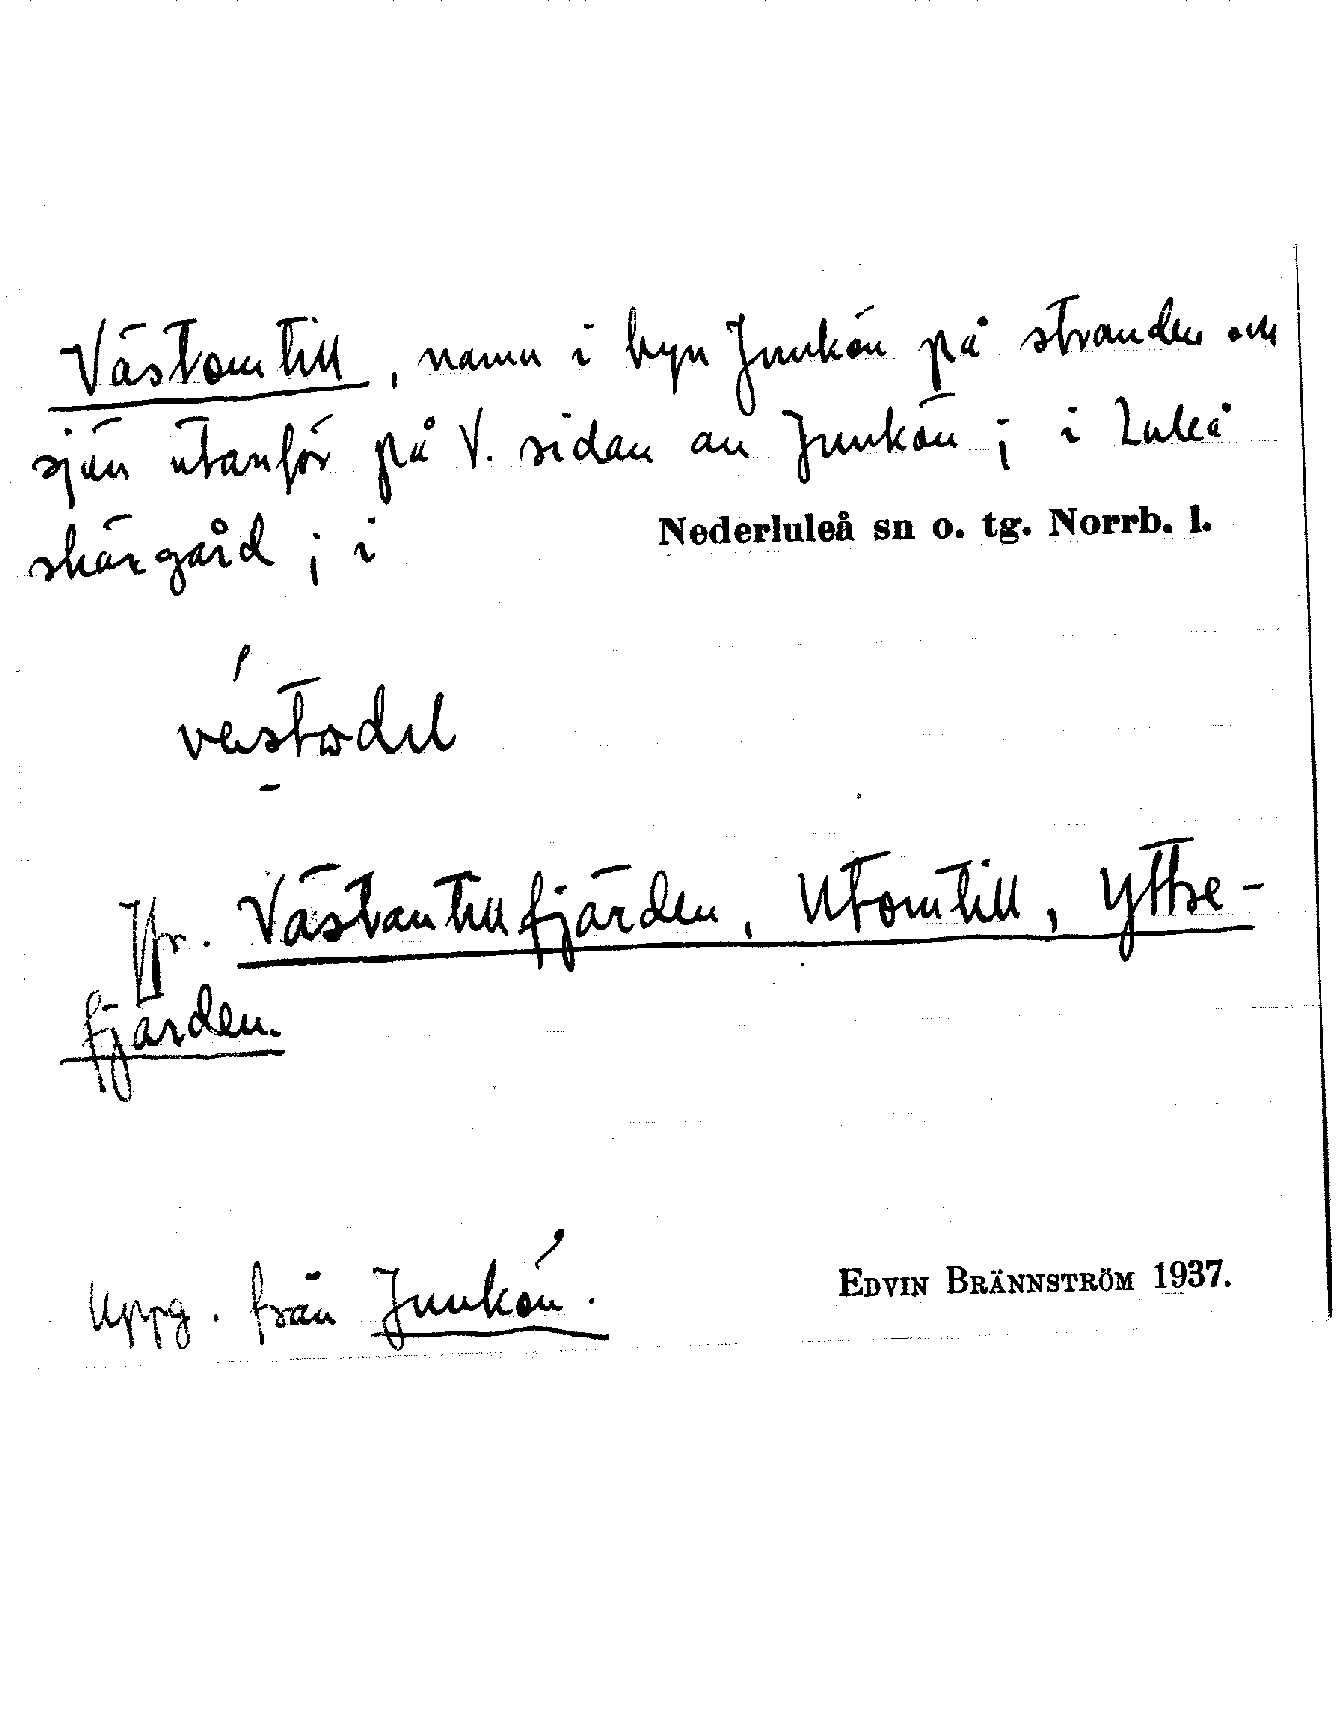 Västomtill, namn i byn Junkön på stranden och
sjön utanför på V. sidan av Junkön; i Luleå
skärgård; i Nederluleå sn o. tg. Norrb. l.
Jfr. Västantillfjärden, Utomtill, Yttre-
fjärden.
Uppg. från Junkön.
EDVIN BRÄNNSTRÖM 1937.